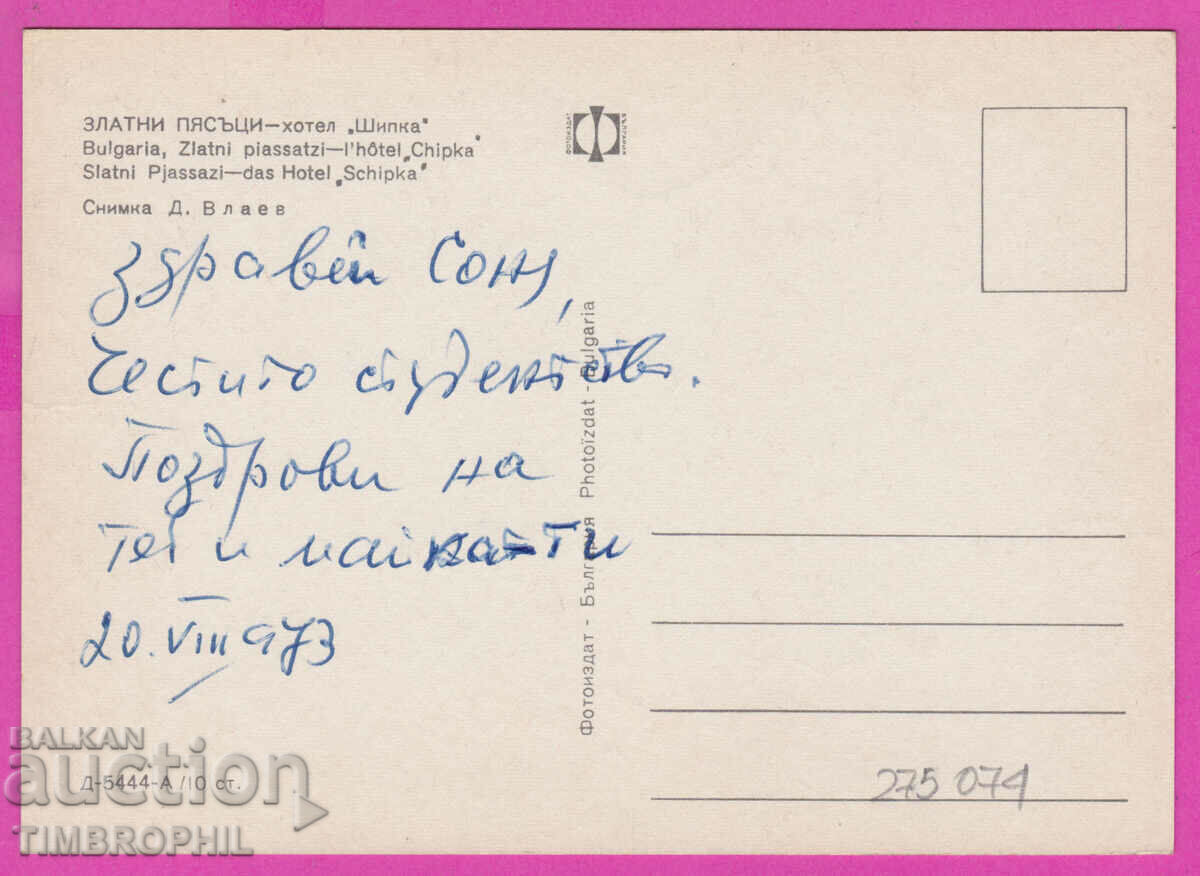 ЗЛАТНИ ПЯСЪЦИ—хотел „Шипка“
Bulgaria, Zlatni piassatzi—l'hôtel „Chipka“
Slatni Pjassazi—das Hotel „Schipka“
Снимка Д. Влаев
ФОТОИЗДАТ
БЪЛГАРИЯ
Здравей Соня,
Честито студентство.
Поздрови на
теб и майка-ти
20.VIII 973
Фотоиздат - България Photoïzdat - Bulgaria
Д-5444-А /10 ст.
275 074
BALKAN
auction
TIMBROPHIL